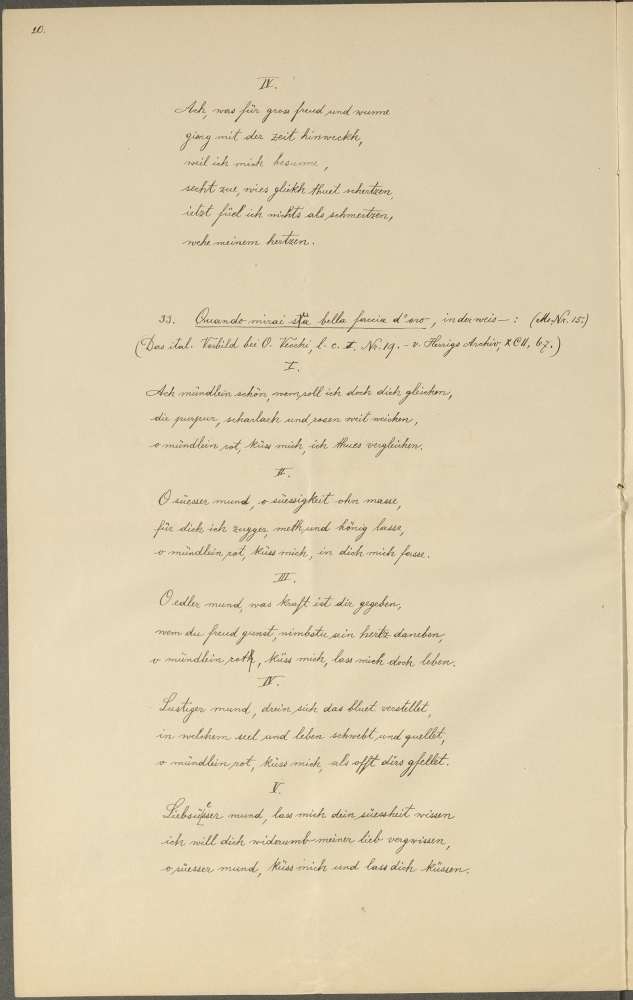 10.
IV.
Ach, was für gross freud und wunne
gieng mit der zeit hinweckh,
weil ich mich besunne,
secht zue, wies glückh thuet schertzen,
ietzt füel ich nichts als schmertzen,
wehe meinem hertzen.
33. Quando mirai sta bella faccia d'oro, in der weis — : (Ms. Nr. 15.)
(Das ital. Vorbild bei O. Vecchi, l. c. I, Nr. 19. - v. Herrigs Archiv, XCII, 67.)
I.
Ach mündlein schön, wem soll ich doch dich gleichen,
die purpur, scharlach und rosen weit weichen,
o mündlein rot, küss mich, ich thues vergleichen.
II.
O süesser mund, o süessigkeit ohn masse,
für dich ich zugger, meth und hönig lasse,
o mündlein rot, küss mich, in dich mich fasse.
III.
O edler mund, was kraft ist dir gegeben,
wem du freud gunst, nimbstu sein hertz daneben,
o mündlein roth, küss mich, lass mich doch leben.
IV.
Lustiger mund, drein sich das bluet verstellet,
in welchem seel und leben schwebt und quellet,
o mündlein rot, küss mich, als offt dirs gfellet.
V.
Liebsüesser mund, lass mich dein süessheit wissen
ich will dich widerumb meiner lieb vergwissen,
o süesser mund, küss mich und lass dich küssen.